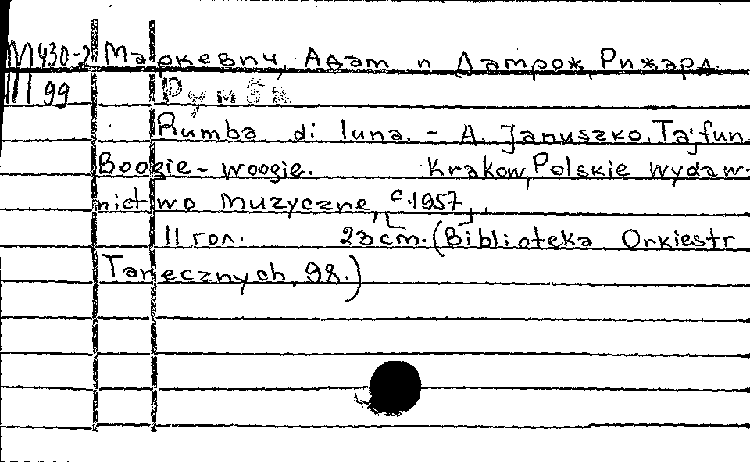 М430-2 Маркевич, Адам и Дамрож, Рижард.
III 99 Румба
Rumba di luna. - A. Januszko. Tajfun.
Boogie-woogie. Krakow, Polskie wydaw-
nictwo muzyczne, [c.1957].
II гол. 23 cm. (Biblioteka Orkiestr
Tanecznych, 98.)